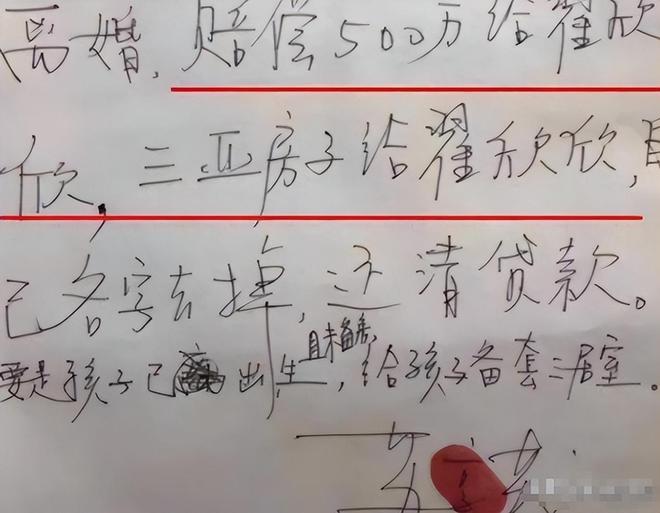 离婚，赔偿500万给翟欣
欣，三亚房子给翟欣欣，自
己名字去掉，还清贷款。
且未备房，
要是孩子已出生，给孩子备套三居室。
苏享茂